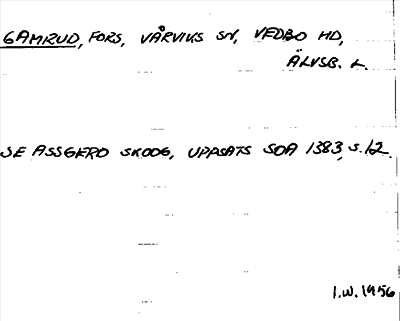 GAMRUD, FORS, VÅRVIKS SN, VEDBO HD,
ÄLVSB. L.
SE ASSGERD SKOOG, UPPSATS SOA 1383, S.12.
I.W. 1956